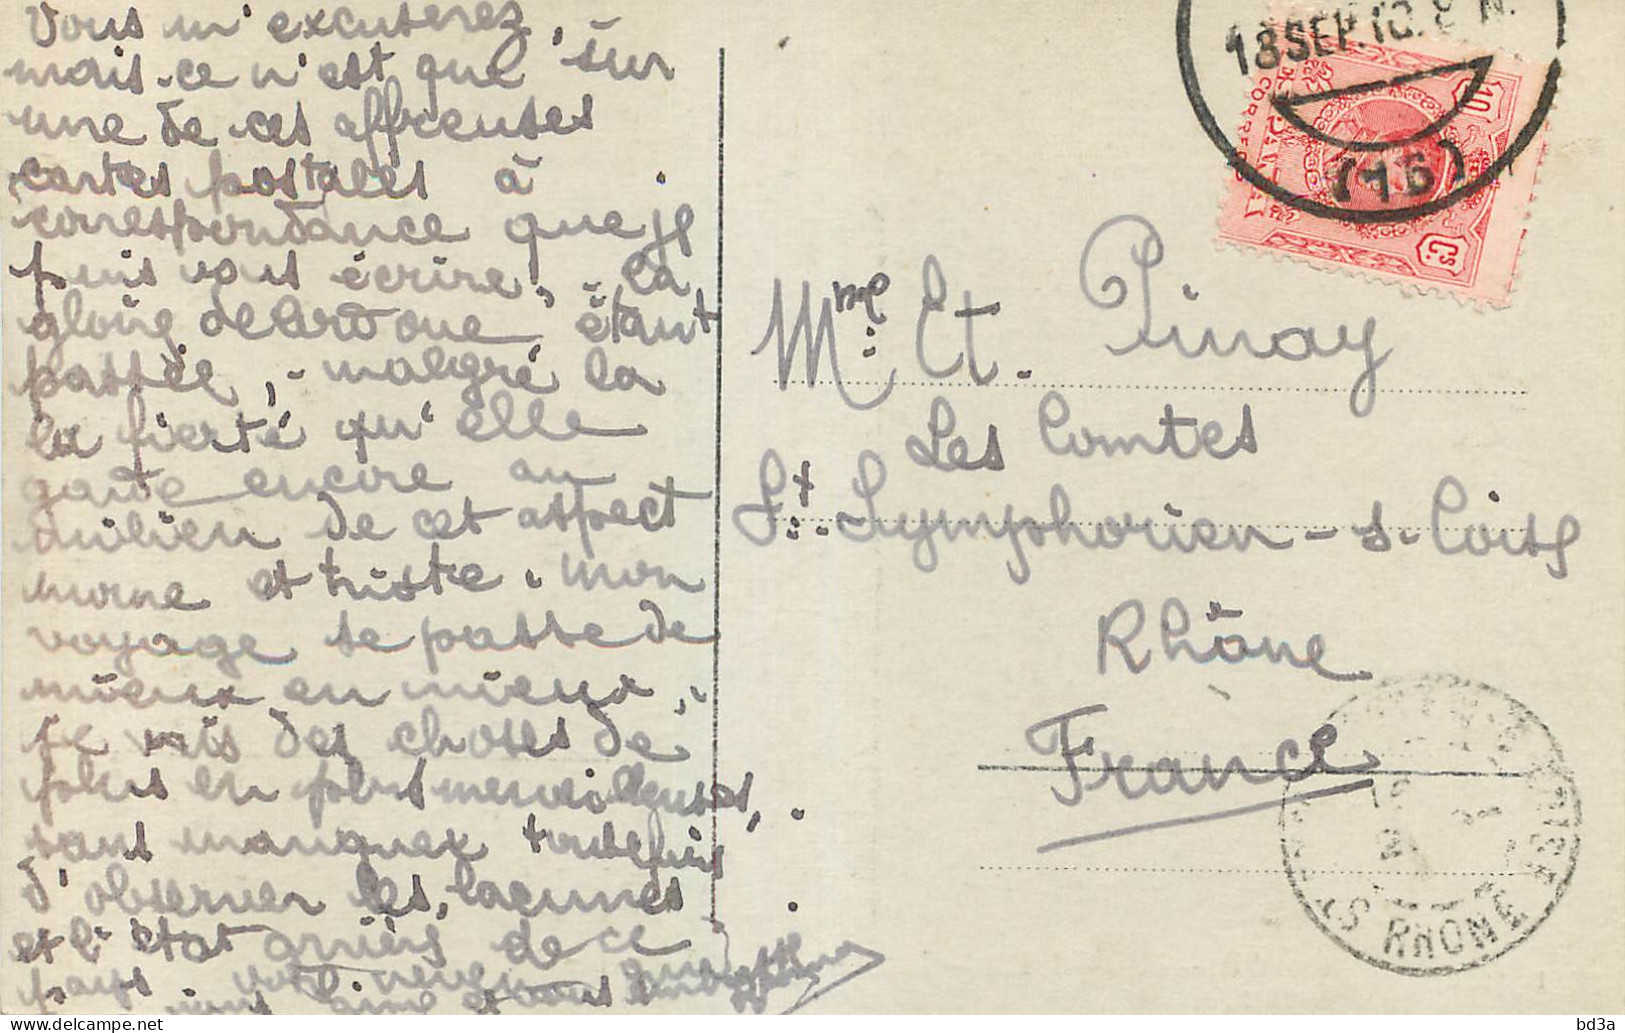 Vous m'excuserez,
mais ce n'est que sur
une de ces affreuses
cartes postales à
correspondance que je
puis vous écrire, - la
gloire de Cordoue étant
passée, - malgré la
la fierté qu'elle
garde encore au
milieu de cet aspect
morne et triste. mon
voyage se passe de
mieux en mieux,
je vois des choses de
plus en plus merveilleuses,
sans manquer toutefois
d'observer les lacunes
et l'état arriéré de ce
pays votre neveu qui
vous aime et vous embrasse
18 SEP. 10. 8 N.
(16)
CORREOS
10 Cs
Mme Et. Pinay
Les Comtes
St. Symphorien - s - Coise
Rhône
France
RHONE
bd3a